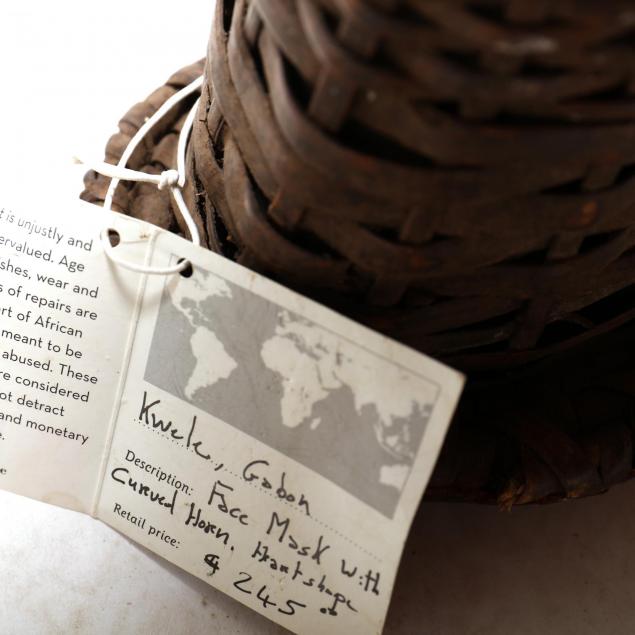 t is unjustly and
ervalued. Age
shes, wear and
s of repairs are
rt of African
meant to be
abused. These
re considered
ot detract
and monetary
e.
e
Kwele, Gabon
Description: Face Mask with
Curved Horn. Heartshape
Retail price: $ 245.00